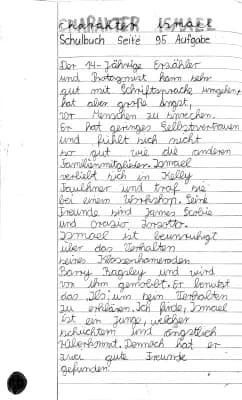 CHARAKTER ISMAEL
Schulbuch Seite 95 Aufgabe
Der 14-Jährige Erzähler
und Protagonist kann sehr
gut mit Schriftsprache umgehen,
hat aber große Angst,
vor Menschen zu sprechen.
Er hat geringes Selbstvertrauen
und fühlt sich nicht
so gut wie die anderen
Familienmitglieder. Ismael
verliebt sich in Kelly
Faulkner und traf sie
bei einem Workshop. Seine
Freunde sind James Scobie
und Orazio
Ismael ist beunruhigt
über das Verhalten
seines Klassenkameraden
Barry Bagsley und wird
von ihm gemobbt. Er benutzt
das um sein Verhalten
zu erklären. Ich finde, Ismael
ist ein Junge, welcher
schüchtern und ängstlich
rüberkommt. Dennoch hat er
zwei gute Freunde
gefunden.